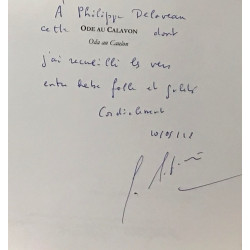 À Philippe Delaveau
cette ODE AU CALAVON dont
Ode au Caulon
j'ai recueilli les vers
entre herbe folle et galets
Cordialement